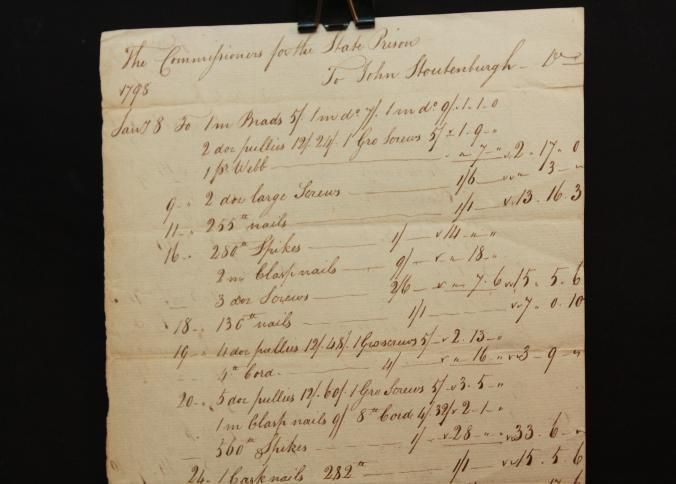 The Commissioners for the State Prison
To John Stoutenburgh Dr
1798
Jany 8 To 1 m Brads 5/. 1 m do 7/. 1 m do 9/. 1. 1. 0
2 doz pullies 12/. 24/. 1 Gro Screws 5/ 1. 9 "
1 ps Webb " " 7 " 2. 17. 0
9 " 2 doz large Screws 1/6 " " 3 "
11 " 255 lb nails 1/1 13. 16. 3
16 " 280 lb Spikes 1/ 14 " "
2 m Clasp nails 9/ " 18 "
3 doz Screws 2/6 " 7. 6 15. 5. 6
18 " 130 lb nails 1/1 7. 0. 10
19 " 4 doz pullies 12/. 48/. 1 Gro screws 5/ 2. 13 "
4 lb Cord 4/ " 16 " 3. 9 "
20 " 5 doz pullies 12/. 60/. 1 Gro Screws 5/ 3. 5 "
1 m Clasp nails 9/ 8 lb Cord 4/. 32/ 2. 1 "
560 lb Spikes 1/ 28 " " 33. 6 "
24 " 1 Cask nails 282 lb 1/1 15. 5. 6